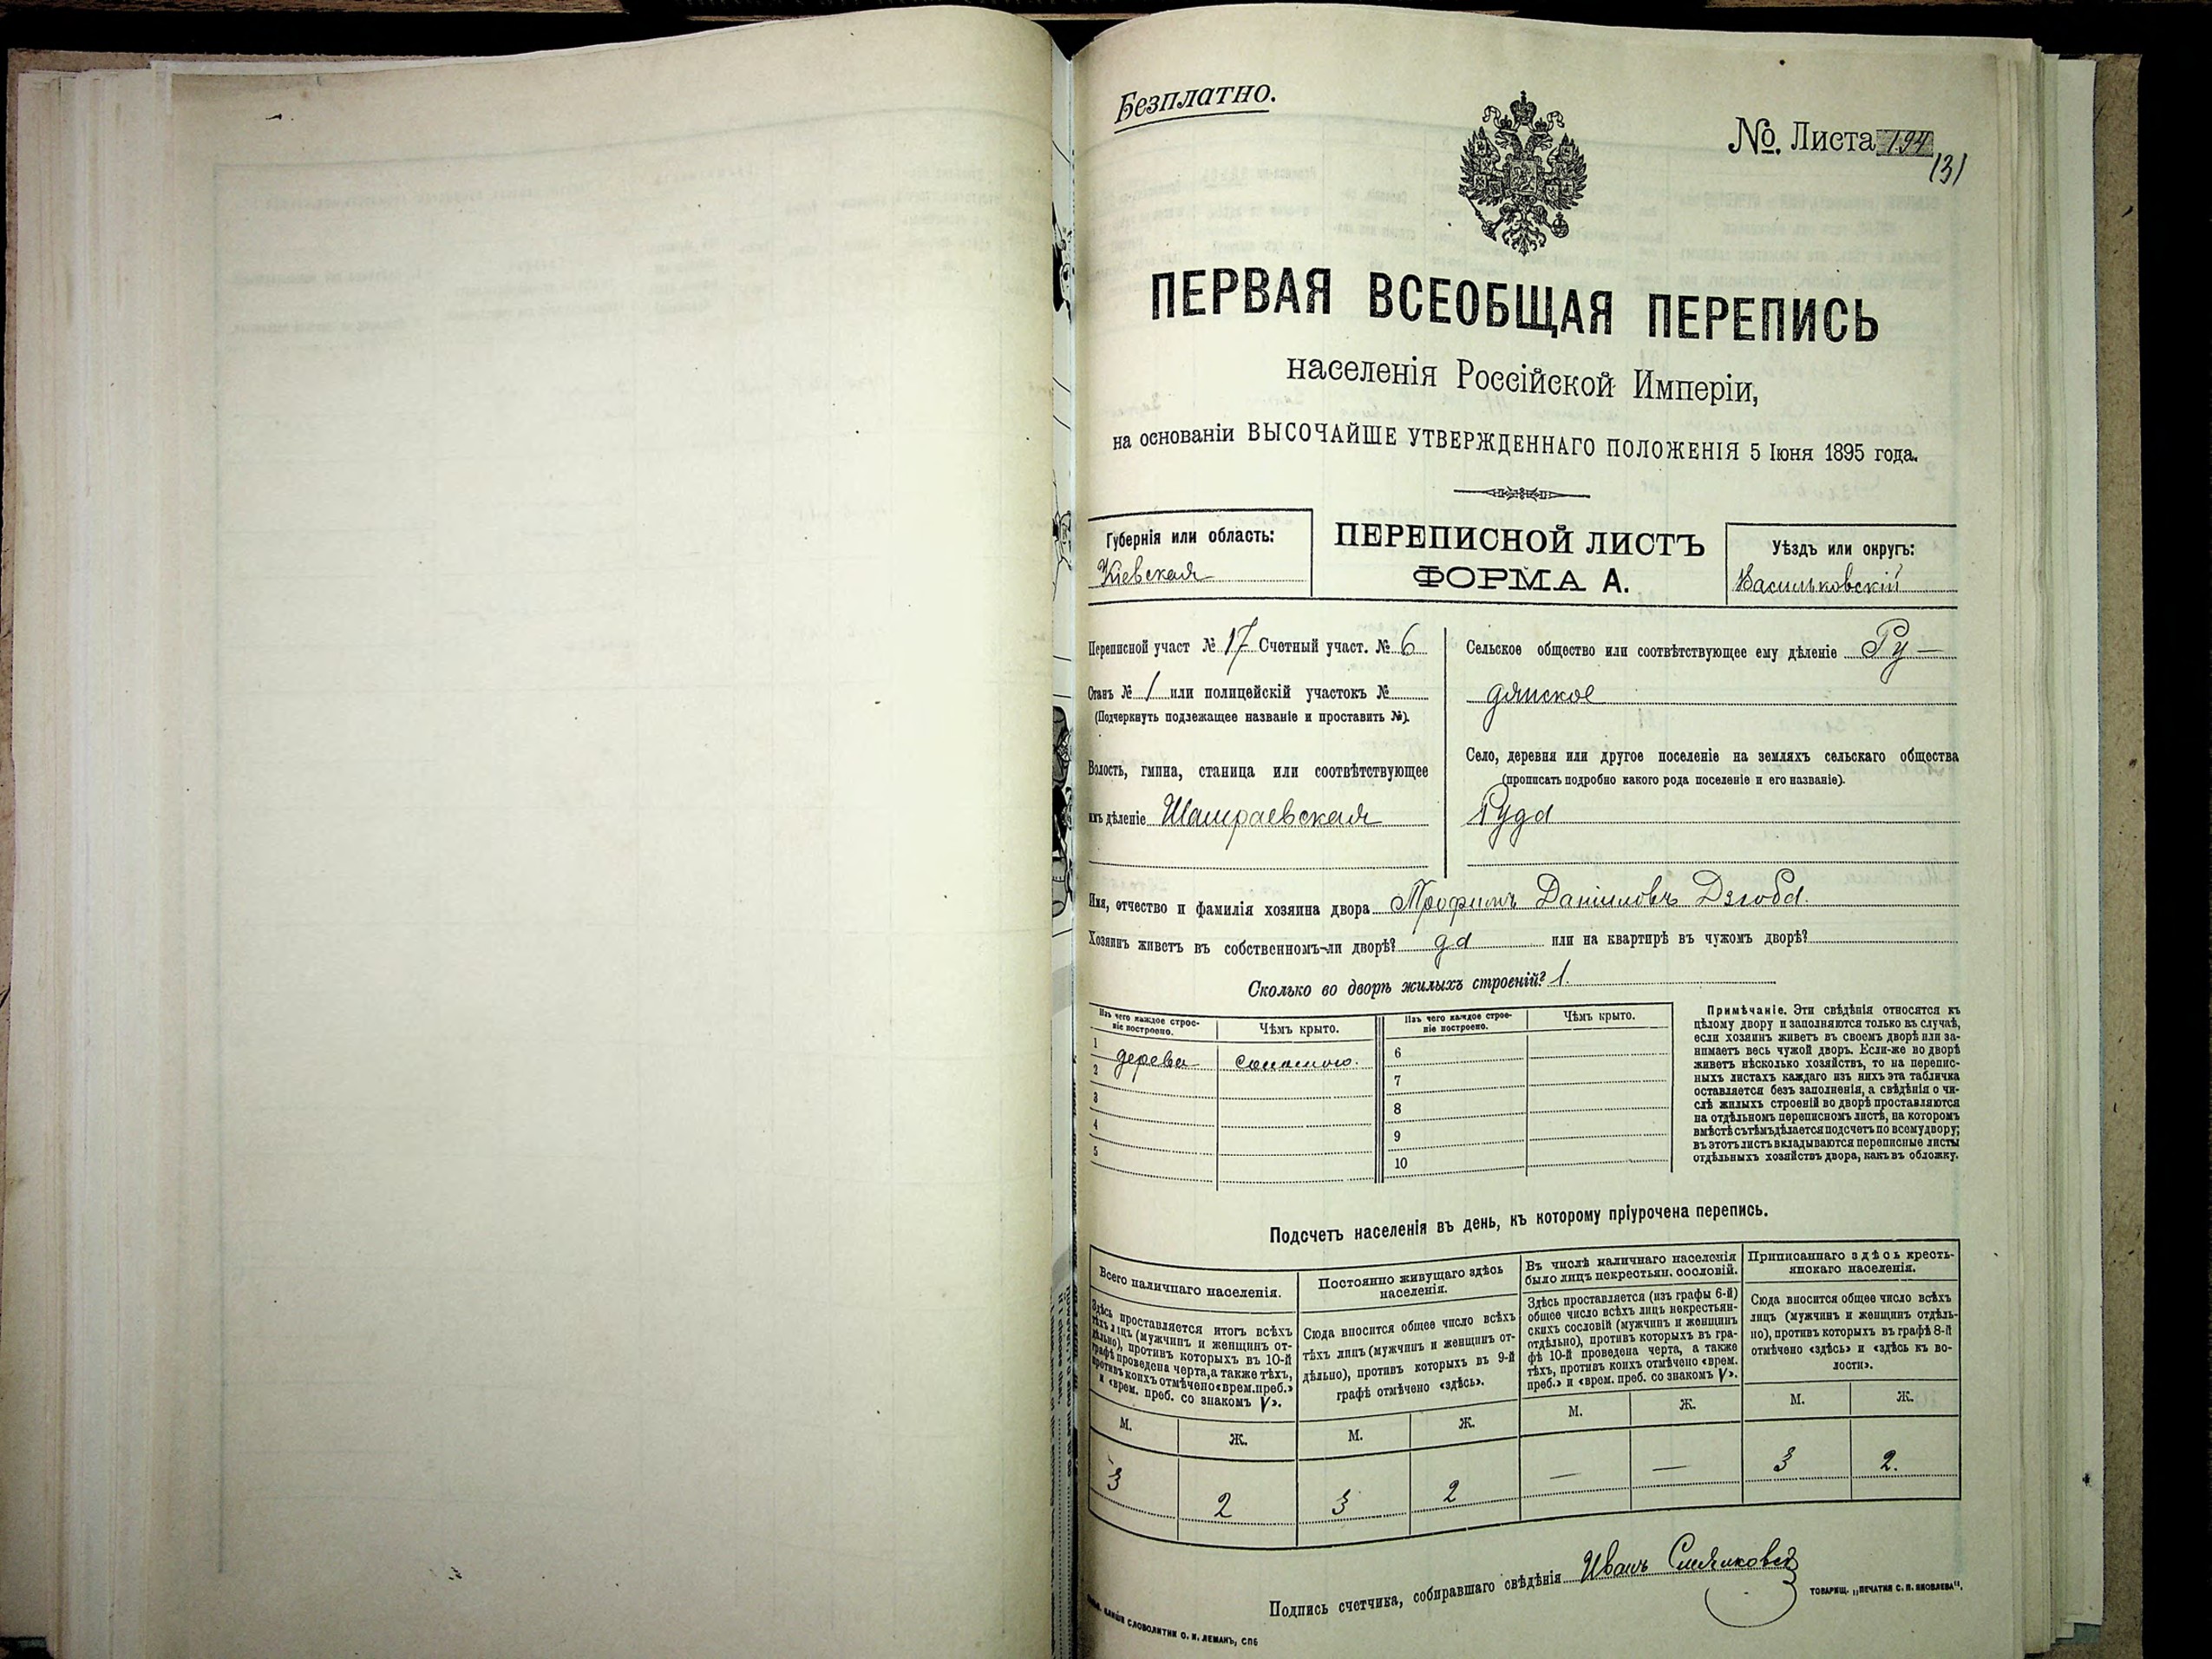 Безплатно.
№. Листа 194
131
ПЕРВАЯ ВСЕОБЩАЯ ПЕРЕПИСЬ
населенія Россійской Имперіи,
на основаніи ВЫСОЧАЙШЕ УТВЕРЖДЕННАГО ПОЛОЖЕНІЯ 5 Іюня 1895 года.
Губернія или область:
Кіевская
ПЕРЕПИСНОЙ ЛИСТЪ
ФОРМА А.
Уѣздъ или округъ:
Васильковскій
Переписной участ № 17 Счетный участ. № 6
Станъ № 1 или полицейскій участокъ №
(Подчеркнуть подлежащее названіе и проставить №).
Волость, гмина, станица или соотвѣтствующее
имъ дѣленіе Шамраевская
Сельское общество или соотвѣтствующее ему дѣленіе Ру-
дянское
Село, деревня или другое поселеніе на земляхъ сельскаго общества
(прописать подробно какого рода поселеніе и его названіе).
Руда
Имя, отчество и фамилія хозяина двора Трофимъ Даніиловъ Дзюба.
Хозяинъ живетъ въ собственномъ-ли дворѣ? да или на квартирѣ въ чужомъ дворѣ?
Сколько во дворѣ жилыхъ строеній? 1.
Изъ чего каждое строе-
ніе построено.
Чѣмъ крыто.
Изъ чего каждое строе-
ніе построено.
Чѣмъ крыто.
1 дерева соломою.
2
3
4
5
6
7
8
9
10
Примѣчаніе. Эти свѣдѣнія относятся къ
цѣлому двору и заполняются только въ случаѣ,
если хозяинъ живетъ въ своемъ дворѣ или за-
нимаетъ весь чужой дворъ. Если-же во дворѣ
живетъ нѣсколько хозяйствъ, то на перепис-
ныхъ листахъ каждаго изъ нихъ эта табличка
оставляется безъ заполненія, а свѣдѣнія о чи-
слѣ жилыхъ строеній во дворѣ проставляются
на отдѣльномъ переписномъ листѣ, на которомъ
вмѣстѣ съ тѣмъ дѣлается подсчетъ по всему двору;
въ этотъ листъ вкладываются переписные листы
отдѣльныхъ хозяйствъ двора, какъ въ обложку.
Подсчетъ населенія въ день, къ которому пріурочена перепись.
Всего наличнаго населенія.
Здѣсь проставляется итогъ всѣхъ
тѣхъ лицъ (мужчинъ и женщинъ от-
дѣльно), противъ которыхъ въ 10-й
графѣ проведена черта, а также тѣхъ,
противъ коихъ отмѣчено «врем. преб.»
и «врем. преб. со знакомъ V».
Постоянно живущаго здѣсь
населенія.
Сюда вносится общее число всѣхъ
тѣхъ лицъ (мужчинъ и женщинъ от-
дѣльно), противъ которыхъ въ 9-й
графѣ отмѣчено «здѣсь».
Въ числѣ наличнаго населенія
было лицъ некрестьян. сословій.
Здѣсь проставляется (изъ графы 6-й)
общее число всѣхъ лицъ некрестьян-
скихъ сословій (мужчинъ и женщинъ
отдѣльно), противъ которыхъ въ гра-
фѣ 10-й проведена черта, а также
тѣхъ, противъ коихъ отмѣчено «врем.
преб.» и «врем. преб. со знакомъ V».
Приписаннаго здѣсь кресть-
янскаго населенія.
Сюда вносится общее число всѣхъ
лицъ (мужчинъ и женщинъ отдѣль-
но), противъ которыхъ въ графѣ 8-й
отмѣчено «здѣсь» и «здѣсь къ во-
лости».
М. Ж. М. Ж. М. Ж. М. Ж.
3 2 3 2 — — 3 2.
Подпись счетчика, собиравшаго свѣдѣнія Иванъ
ТОВАРИЩ. „ПЕЧАТНЯ С. П. ЯКОВЛЕВА".
СЛОВОЛИТНИ О. И. ЛЕМАНЪ, СПБ